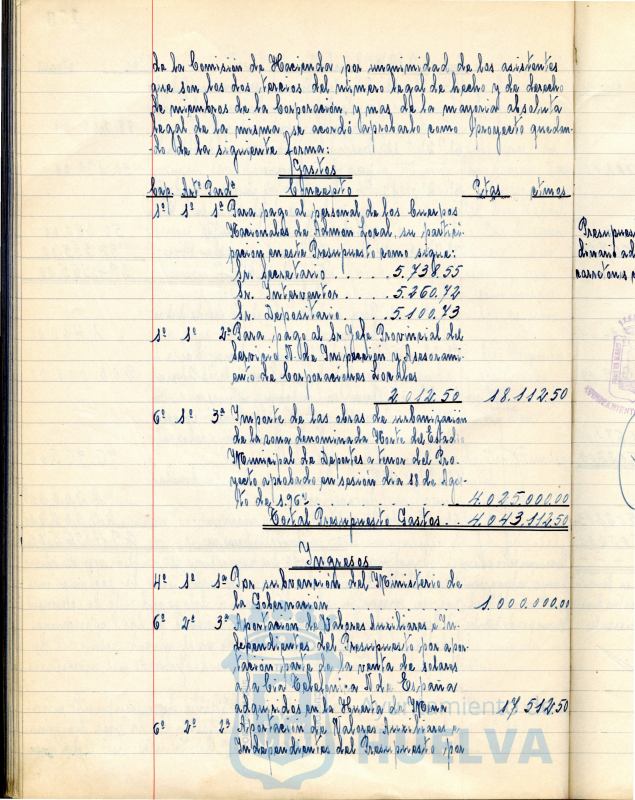 de la Comisión de Hacienda por unanimidad de los asistentes
que son los dos tercios del número legal de hecho y de derecho
de miembros de la Corporación, y mas de la mayoria absoluta
legal de la misma, se acordó aprobarlo como Proyecto quedan-
do de la siguiente forma:
Gastos
Cap. Artº Partª Concepto Ptas ctmos
1º 1º 1ª Para pago al personal de los Cuerpos
Nacionales de Admón Local, su partici-
pación en este Presupuesto como sigue:
Sr. Secretario . . . . . 5.738.55
Sr. Interventor . . . . 5.260.72
Sr. Depositario . . . . 5.100.73
1º 1º 2ª Para pago al Sr Jefe Provincial del
Servicio N. de Inspección y Asesorami-
ento de Corporaciones Locales
2.012.50 18.112.50
6º 1º 3ª Importe de las obras de urbanización
de la zona denominada Norte del Estadio
Municipal de Deportes a tenor del Pro-
yecto aprobado en sesión dia 18 de Ago-
sto de 1.967 . . . . . . . . . . 4.025.000.00
Total Presupuesto Gastos . . 4.043.112.50
Ingresos
4º 1º 1ª Por subvención del Ministerio de
la Gobernación . . . . . . . . . . 1.000.000.00
6º 2º 3ª Aportación de Valores Auxiliares e In-
dependientes del Presupuesto por apor-
tación parte de la venta de solares
a la Cia Telefónica N. de España
adquiridos en la Huerta de Mena 17.512.50
6º 2º 2ª Aportación de Valores Auxiliares e
Independientes del Presupuesto por
Presupues
dinario ad
carretons
Ayuntamiento
HUELVA